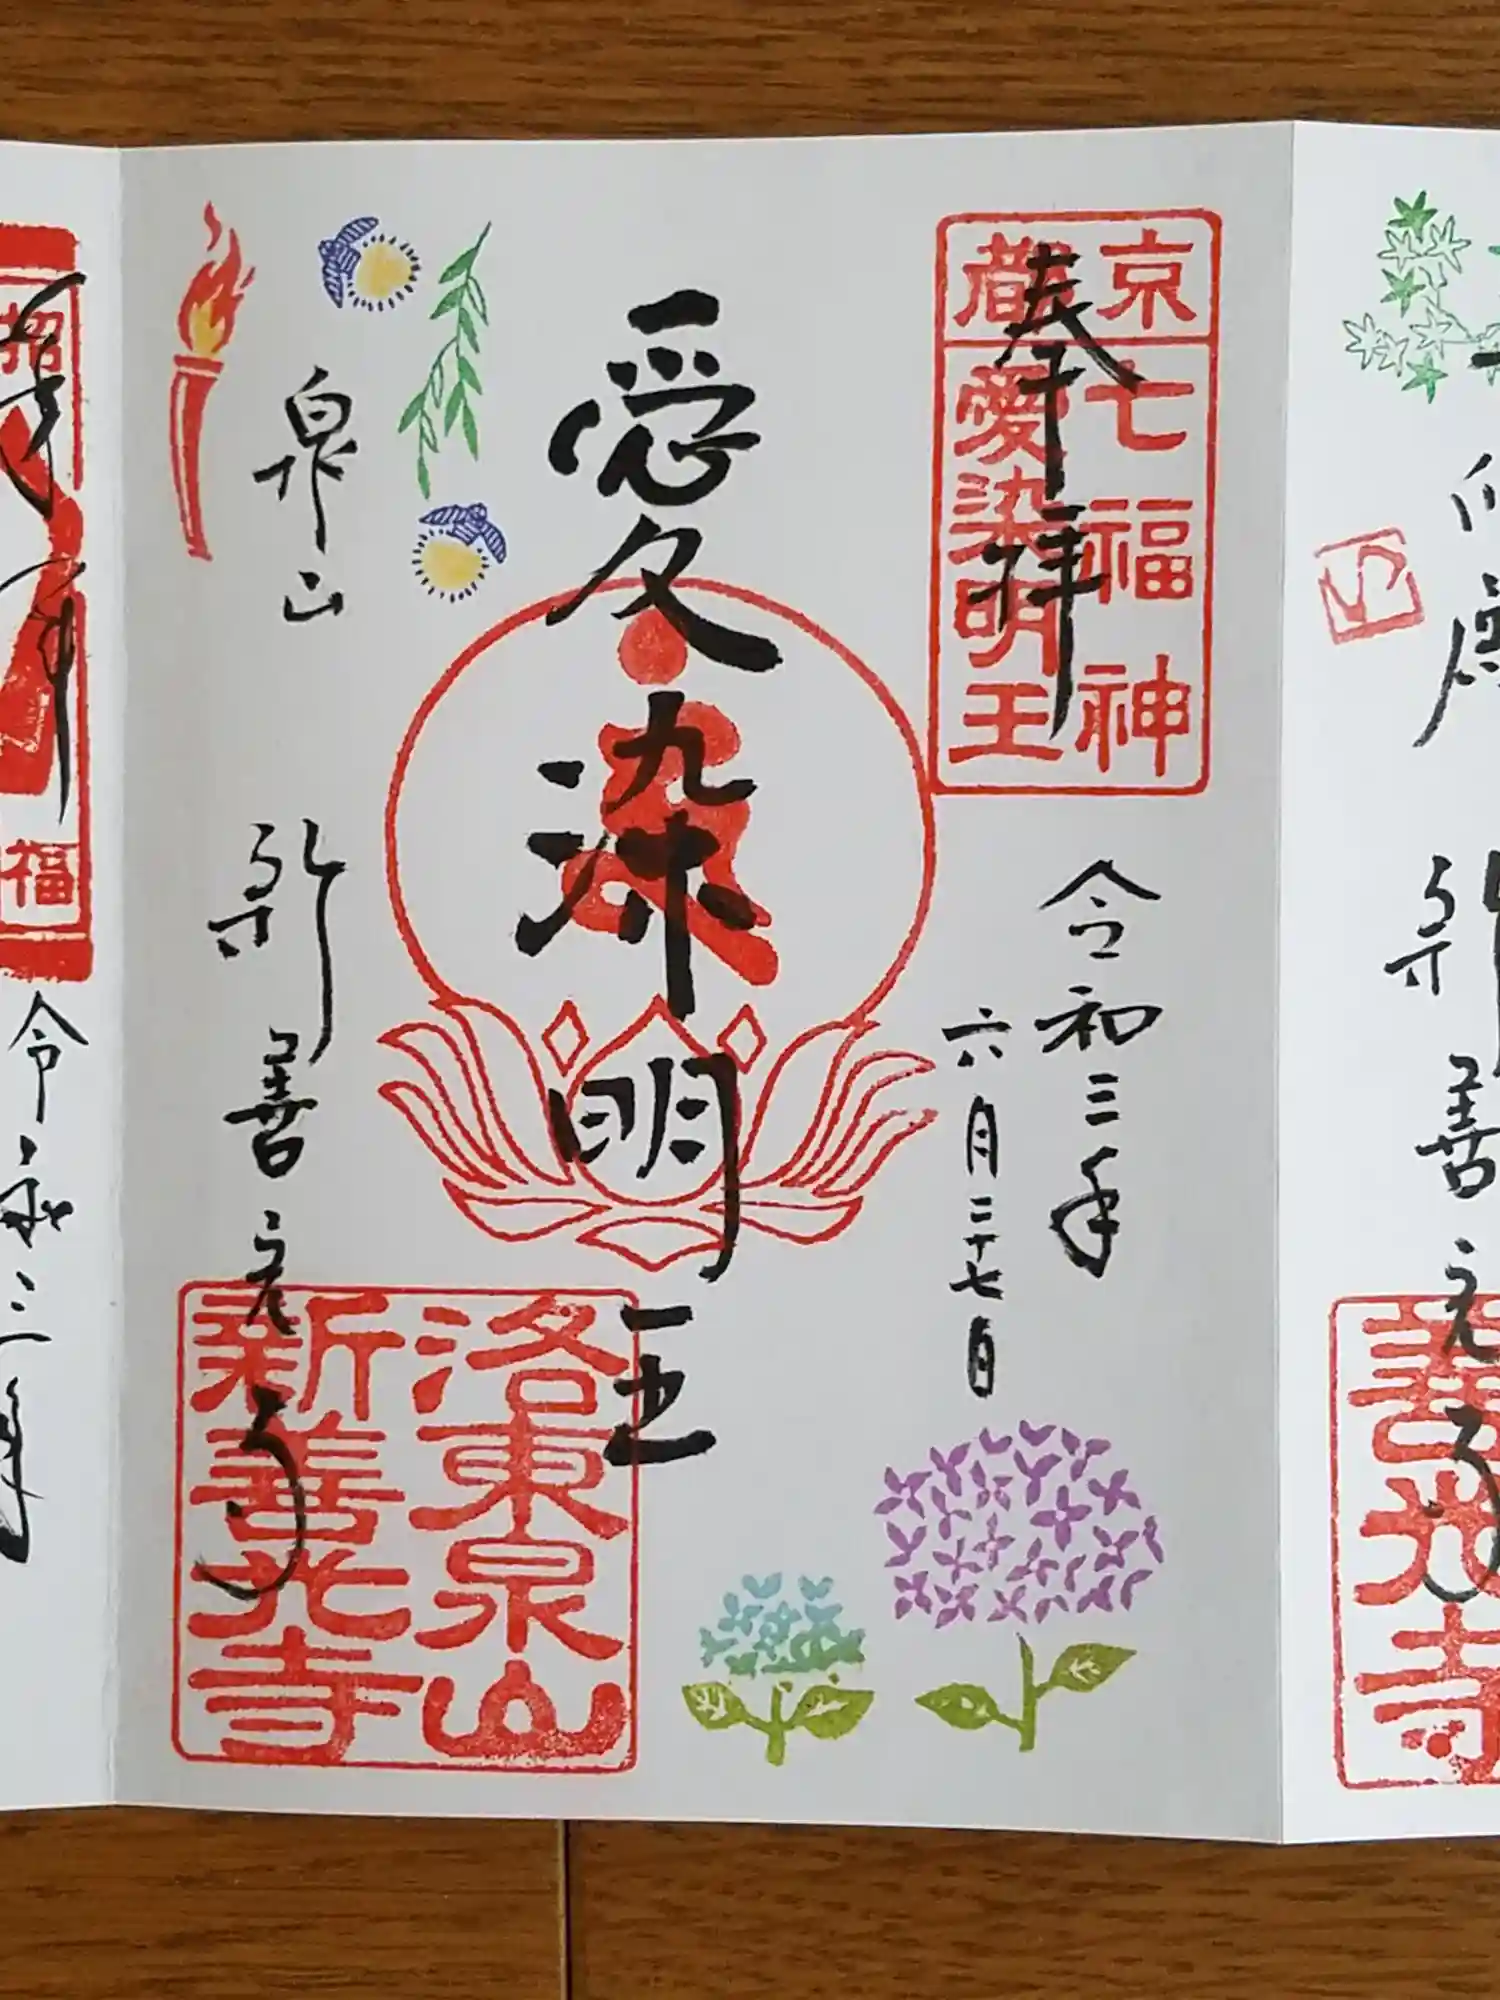 奉拝
京都七福神
愛染明王
令和三年
六月二十七日
愛染明王
洛東泉山
新善光寺
泉山
新善光寺
招
福
令和三年
新善光寺
善光寺